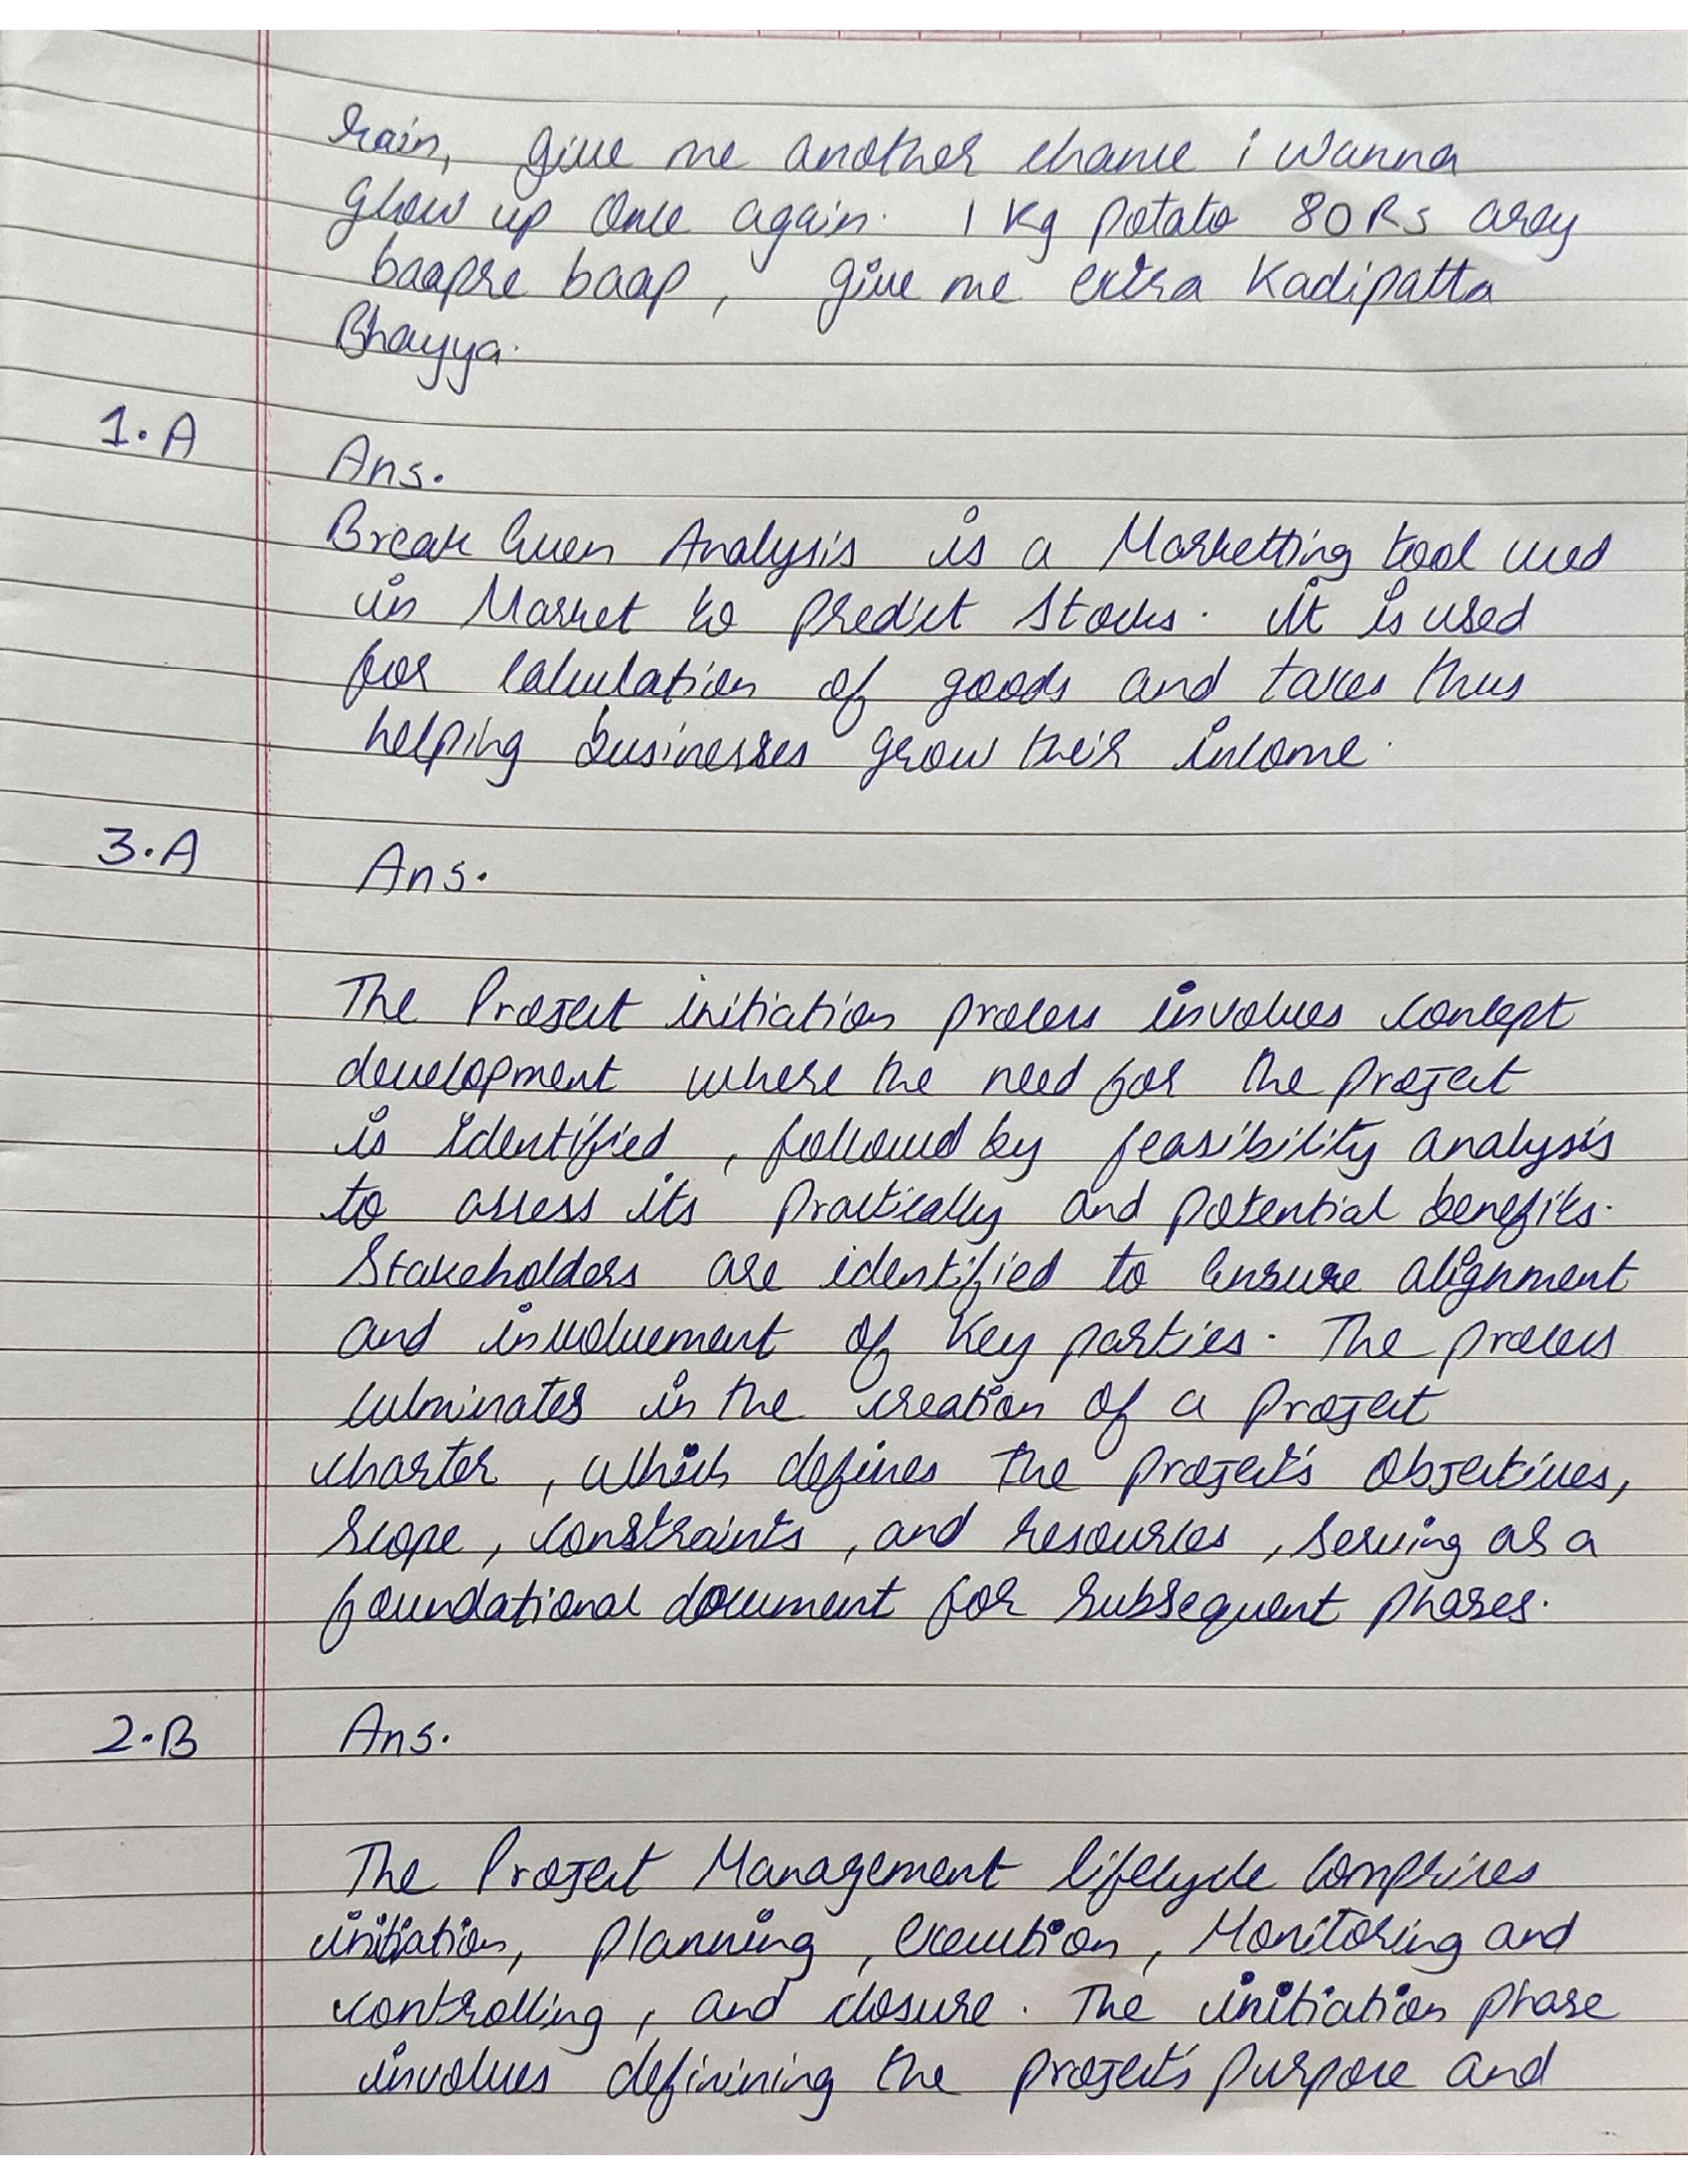 rain, give me another chance i wanna
grow up once again. 1 Kg potato 80 Rs arey
baapre baap, give me extra Kadipatta
Bhayya.
1.A
Ans.
Break Even Analysis is a Marketting tool used
in Market to predict Stocks. it is used
for calculation of goods and taxes thus
helping businesses grow their income.
3.A
Ans.
The Project initiation process involves concept
development where the need for the project
is identified, followed by feasibility analysis
to assess its practically and potential benefits.
Stakeholders are identified to ensure alignment
and involvement of Key parties. The process
culminates in the creation of a project
charter, which defines the project's objectives,
scope, constraints, and resources, serving as a
foundational document for subsequent phases.
2.B
Ans.
The Project Management lifecycle comprises
initiation, planning, execution, Monitoring and
controlling, and closure. The initiation phase
involves definining the project's purpose and